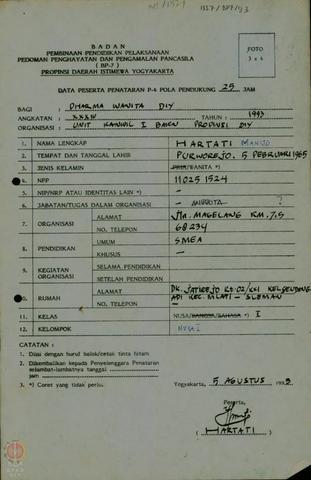 1357 / BP7 / 93
BADAN
PEMBINAAN PENDIDIKAN PELAKSANAAN
PEDOMAN PENGHAYATAN DAN PENGAMALAN PANCASILA
( BP-7 )
PROPINSI DAERAH ISTIMEWA YOGYAKARTA
FOTO
3 x 4
DATA PESERTA PENATARAN P-4 POLA PENDUKUNG 25 JAM
BAGI : DHARMA WANITA DIY
ANGKATAN : XXXIV TAHUN : 1993
ORGANISASI : UNIT KANWIL I BAKN PROPINSI DIY
1. NAMA LENGKAP HARTATI
2. TEMPAT DAN TANGGAL LAHIR PURWOREJO, 5 PEBRUARI 1965
3. JENIS KELAMIN PRIA/WANITA *)
4. NPP 11025 1524
5. NIP/NRP ATAU IDENTITAS LAIN *) –
6. JABATAN/TUGAS DALAM ORGANISASI – ANGGOTA –
7. ORGANISASI ALAMAT JLN. MAGELANG KM. 7,5
NO. TELEPON 68234
8. PENDIDIKAN UMUM SMEA
KHUSUS –
9. KEGIATAN ORGANISASI SELAMA PENDIDIKAN –
SETELAH PENDIDIKAN –
10. RUMAH ALAMAT DK. JATIREJO RT.02/XXI KEL SENDANG
ADI KEC. MLATI – SLEMAN
NO. TELEPON –
11. KELAS NUSA/BANGSA/BAHASA *) I
12. KELOMPOK NUSA I
CATATAN :
1. Diisi dengan huruf balok/cetak tinta hitam
2. Dikembalikan kepada Penyelenggara Penataran
selambat-lambatnya tanggal
jam
3. *) Coret yang tidak perlu.
Yogyakarta, 5 AGUSTUS 1993
Peserta,
( HARTATI )